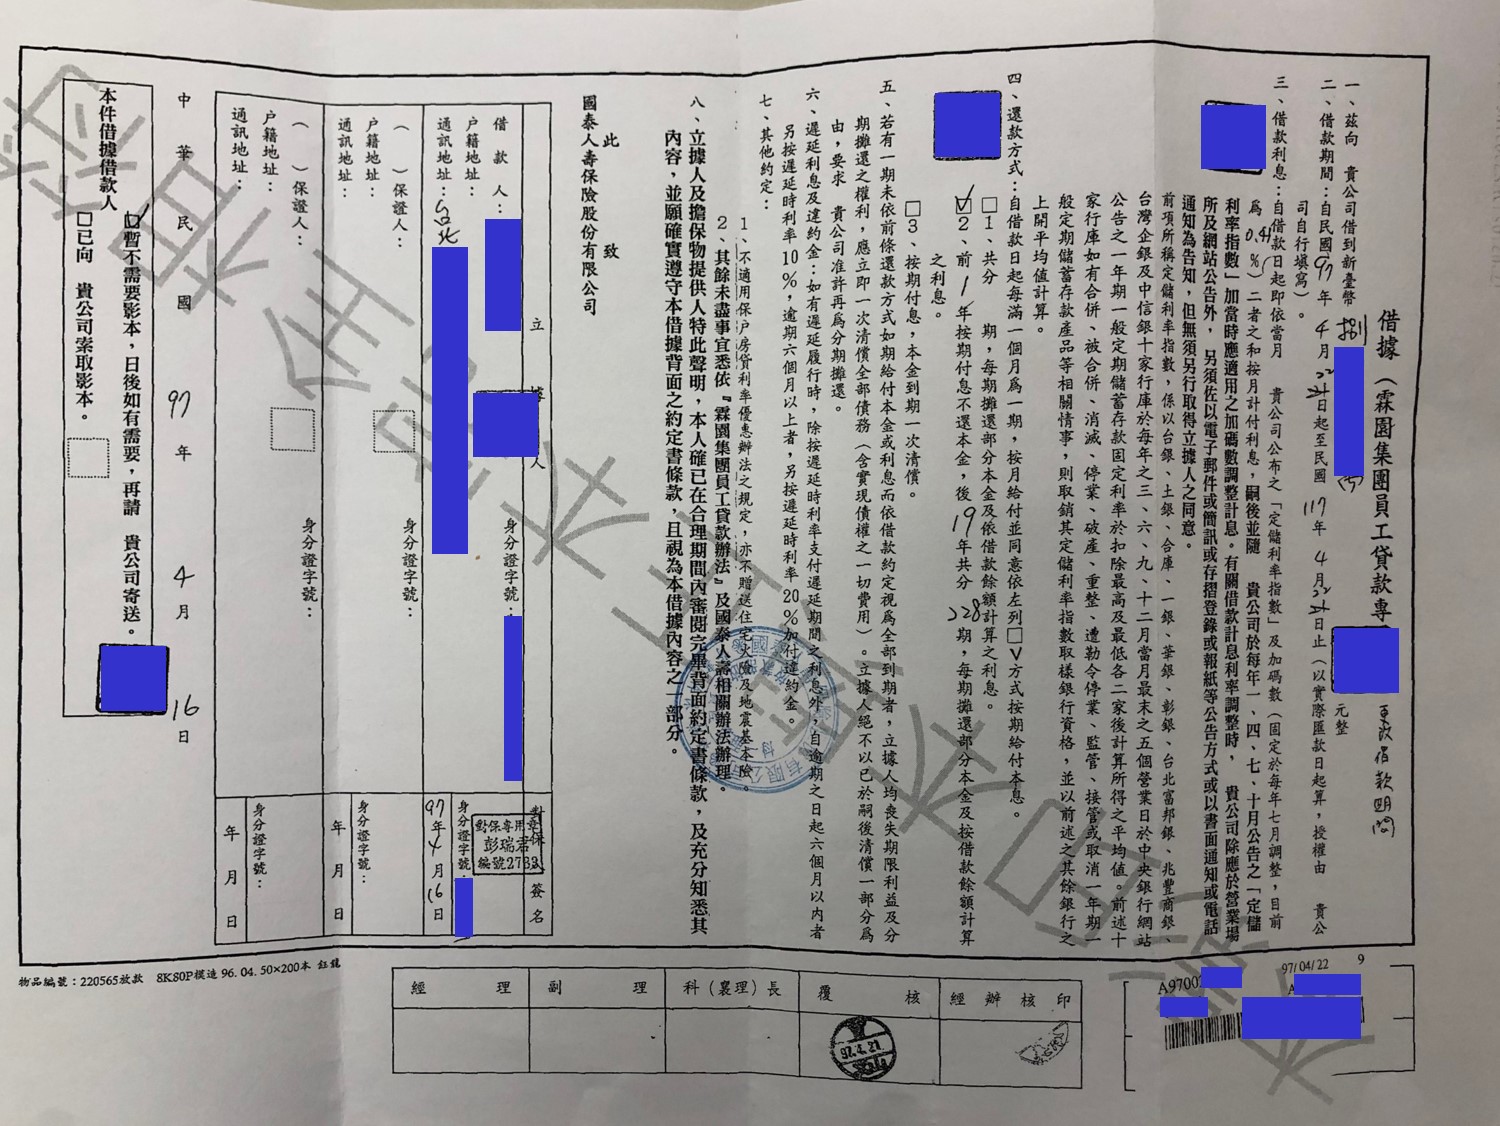 借據（霖園集團員工貸款專
一、茲向　貴公司借到新臺幣捌
元整
二、借款期間：自民國97年4月22日起至民國117年4月22日止（以實際匯款日起算，授權由　貴公
司自行填寫）。
三、借款利息：自借款日起即依當月　貴公司公布之「定儲利率指數」及加碼數（固定於每年七月調整，目前
為0.41％）二者之和按月計付利息，嗣後並隨　貴公司於每年一、四、七、十月公告之「定儲
利率指數」加當時應適用之加碼數調整計息。有關借款計息利率調整時，貴公司除應於營業場
所及網站公告外，另須佐以電子郵件或簡訊或存摺登錄或報紙等公告方式或以書面通知或電話
通知為告知，但無須另行取得立據人之同意。
前項所稱定儲利率指數，係以台銀、土銀、合庫、一銀、華銀、彰銀、台北富邦銀、兆豐商銀、
台灣企銀及中信銀十家行庫於每年之三、六、九、十二月當月最末之五個營業日於中央銀行網站
公告之一年期一般定期儲蓄存款固定利率於扣除最高及最低各二家後計算所得之平均值。前述十
家行庫如有合併、被合併、消滅、停業、破產、重整、遭勒令停業、監管、接管或取消一年期一
般定期儲蓄存款產品等相關情事，則取銷其定儲利率指數取樣銀行資格，並以前述之其餘銀行之
上開平均值計算。
四、還款方式：自借款日起每滿一個月為一期，按月給付並同意依左列□V方式按期給付本息。
□1、共分　期，每期攤還部分本金及依借款餘額計算之利息。
☑2、前1年按期付息不還本金，後19年共分228期，每期攤還部分本金及按借款餘額計算
之利息。
□3、按期付息，本金到期一次清償。
五、若有一期未依前條還款方式如期給付本金或利息而依借款約定視為全部到期者，立據人均喪失期限利益及分
期攤還之權利，應立即一次清償全部債務（含實現債權之一切費用）。立據人絕不以已於嗣後清償一部分為
由，要求　貴公司准許再為分期攤還。
六、遲延利息及違約金：如有遲延履行時，除按遲延時利率支付遲延期間之利息外，自逾期之日起六個月以內者
另按遲延時利率10％，逾期六個月以上者，另按遲延時利率20％加付違約金。
七、其他約定：
1、不適用保戶房貸利率優惠辦法之規定，亦不贈送住宅火險及地震基本險。
2、其餘未盡事宜悉依『霖園集團員工貸款辦法』及國泰人壽相關辦法辦理。
八、立據人及擔保物提供人特此聲明，本人確已在合理期間內審閱完畢背面約定書條款，及充分知悉其
內容，並願確實遵守本借據背面之約定書條款，且視為本借據內容之一部分。
此　致
國泰人壽保險股份有限公司
立　據　人
對保人簽名
借　款　人：
身分證字號：
戶籍地址：
通訊地址：台北
對保專用章
彭瑞君
編號2732
身分證字號：
97年4月16日
（　）保證人：
身分證字號：
戶籍地址：
通訊地址：
身分證字號：
年　月　日
（　）保證人：
身分證字號：
戶籍地址：
通訊地址：
身分證字號：
年　月　日
中　華　民　國　97　年　4　月　16　日
本件借據借款人
☑暫不需要影本，日後如有需要，再請　貴公司寄送。
□已向　貴公司索取影本。
物品編號：220565放款　8K80P模造 96.04.50×200本 鈺龍
經　理
副　理
科（襄理）長
覆　核
經辦核印
97.4.21.
97/04/22
9
A9700